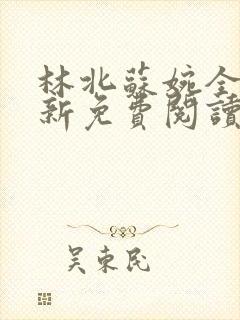 林北蘇婉全
新免費閱讀
吴東民